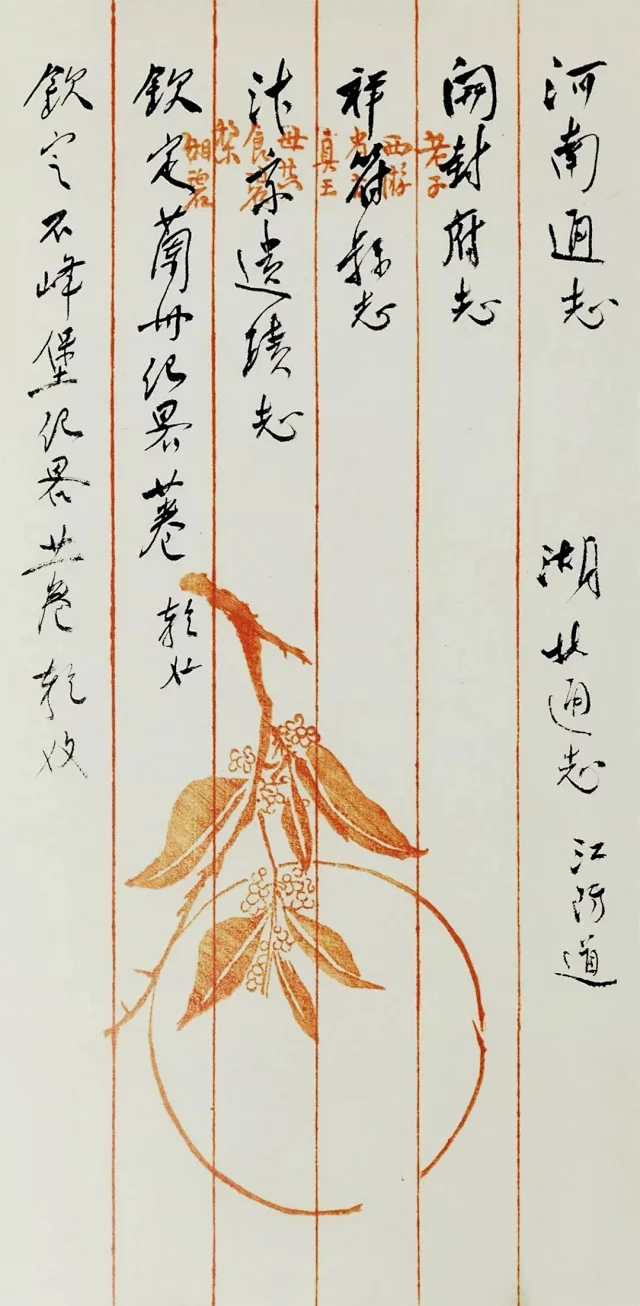 河南通志 湖北通志 江防道
開封府志
祥符縣志
汴京遺蹟志
欽定蘭州紀畧廿卷 乾
欽定石峰堡紀畧廿卷 乾
老子
西游
真王
母共
食
梨